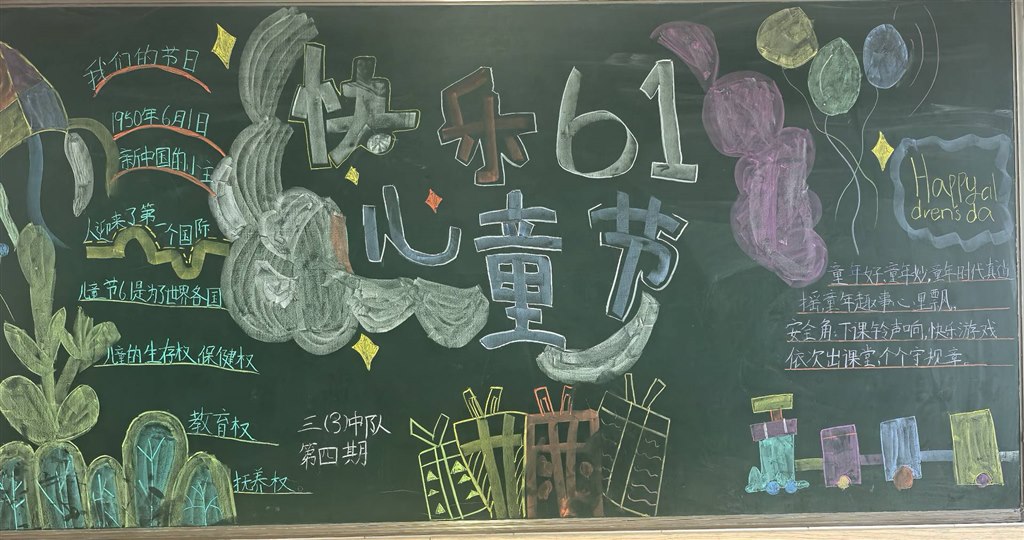 我们的节日
1950年6月1日
新中国的小主
人迎来了第一个国际
儿童节61是为了世界各国
儿童的生存权、保健权
教育权
抚养权
快乐61
儿童节
三(3)中队
第四期
Happy
dren's da
童年好,童年妙,童年时代真逍
摇童年趣事心里飘。
安全角:下课铃声响,快乐游戏
依次出课堂,个个守规章。